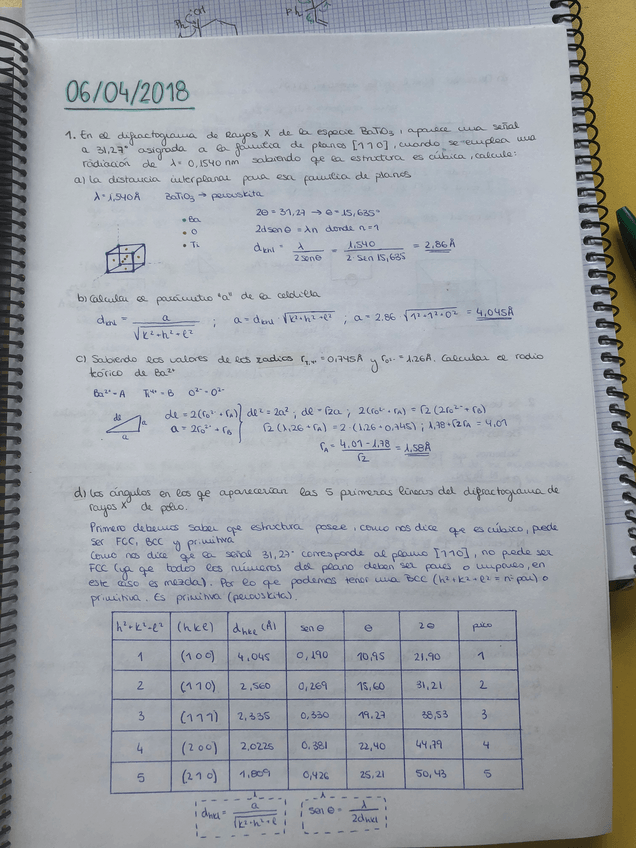 06/04/2018
1. En el difractograma de Rayos X de la especie BaTiO3, aparece una señal
a 31,27° asignada a la familia de planos [110], cuando se emplea una
radiación de λ= 0,1540 nm sabiendo que la estructura es cúbica, calcule:
a) La distancia interplanar para esa familia de planos
λ = 1,540Å BaTiO3 → perovskita
• Ba
• O
• Ti
2θ = 31,27 → θ = 15,635°
2d senθ = λn donde n=1
dhkl = λ / 2senθ = 1,540 / 2·sen 15,635 = 2,86Å
b) Calcular el parámetro "a" de la celdilla
dhkl = a / √k²+h²+l² ; a = dhkl √k²+h²+l² ; a = 2.86 √1²+1²+0² = 4,045Å
c) Sabiendo los valores de los radios rTi4+ = 0,745Å y rO2- = 1.26Å. Calcular el radio
teórico de Ba2+
Ba2+ = A Ti4+ = B O2- = O2-
dc
a
a
dc = 2(rO2- + rA)
a = 2rO2- + rB
dc² = 2a² ; dc = √2a ; 2(rO2- + rA) = √2(2rO2- + rB)
√2 (1,26 + rA) = 2·(1,26 + 0,745) ; 1,78 + √2rA = 4,01
rA = 4,01 - 1,78 / √2 = 1,58Å
d) Los ángulos en los qe aparecerían las 5 primeras líneas del difractograma de
rayos X de polvo.
Primero debemos saber qe estructura posee, como nos dice qe es cúbico, puede
ser FCC, BCC y primitiva
Como nos dice qe la señal 31,27° corresponde al plano [110], no pede ser
FCC (ya qe todos los números del plano deben ser pares o impares, en
este caso es mezcla). Por lo qe podemos tener una BCC (h²+k²+l² = nº par) o
primitiva. Es primitiva (perovskita).
h²+k²+l² (hkl) dhkl (Å) senθ θ 2θ pico
1 (100) 4,045 0,190 10,95 21,90 1
2 (110) 2,560 0,269 15,60 31,21 2
3 (111) 2,335 0,330 19,27 38,53 3
4 (200) 2,0225 0,381 22,40 44,79 4
5 (210) 1,809 0,426 25,21 50,43 5
dhkl = a / √k²+h²+l
senθ = λ / 2dhkl